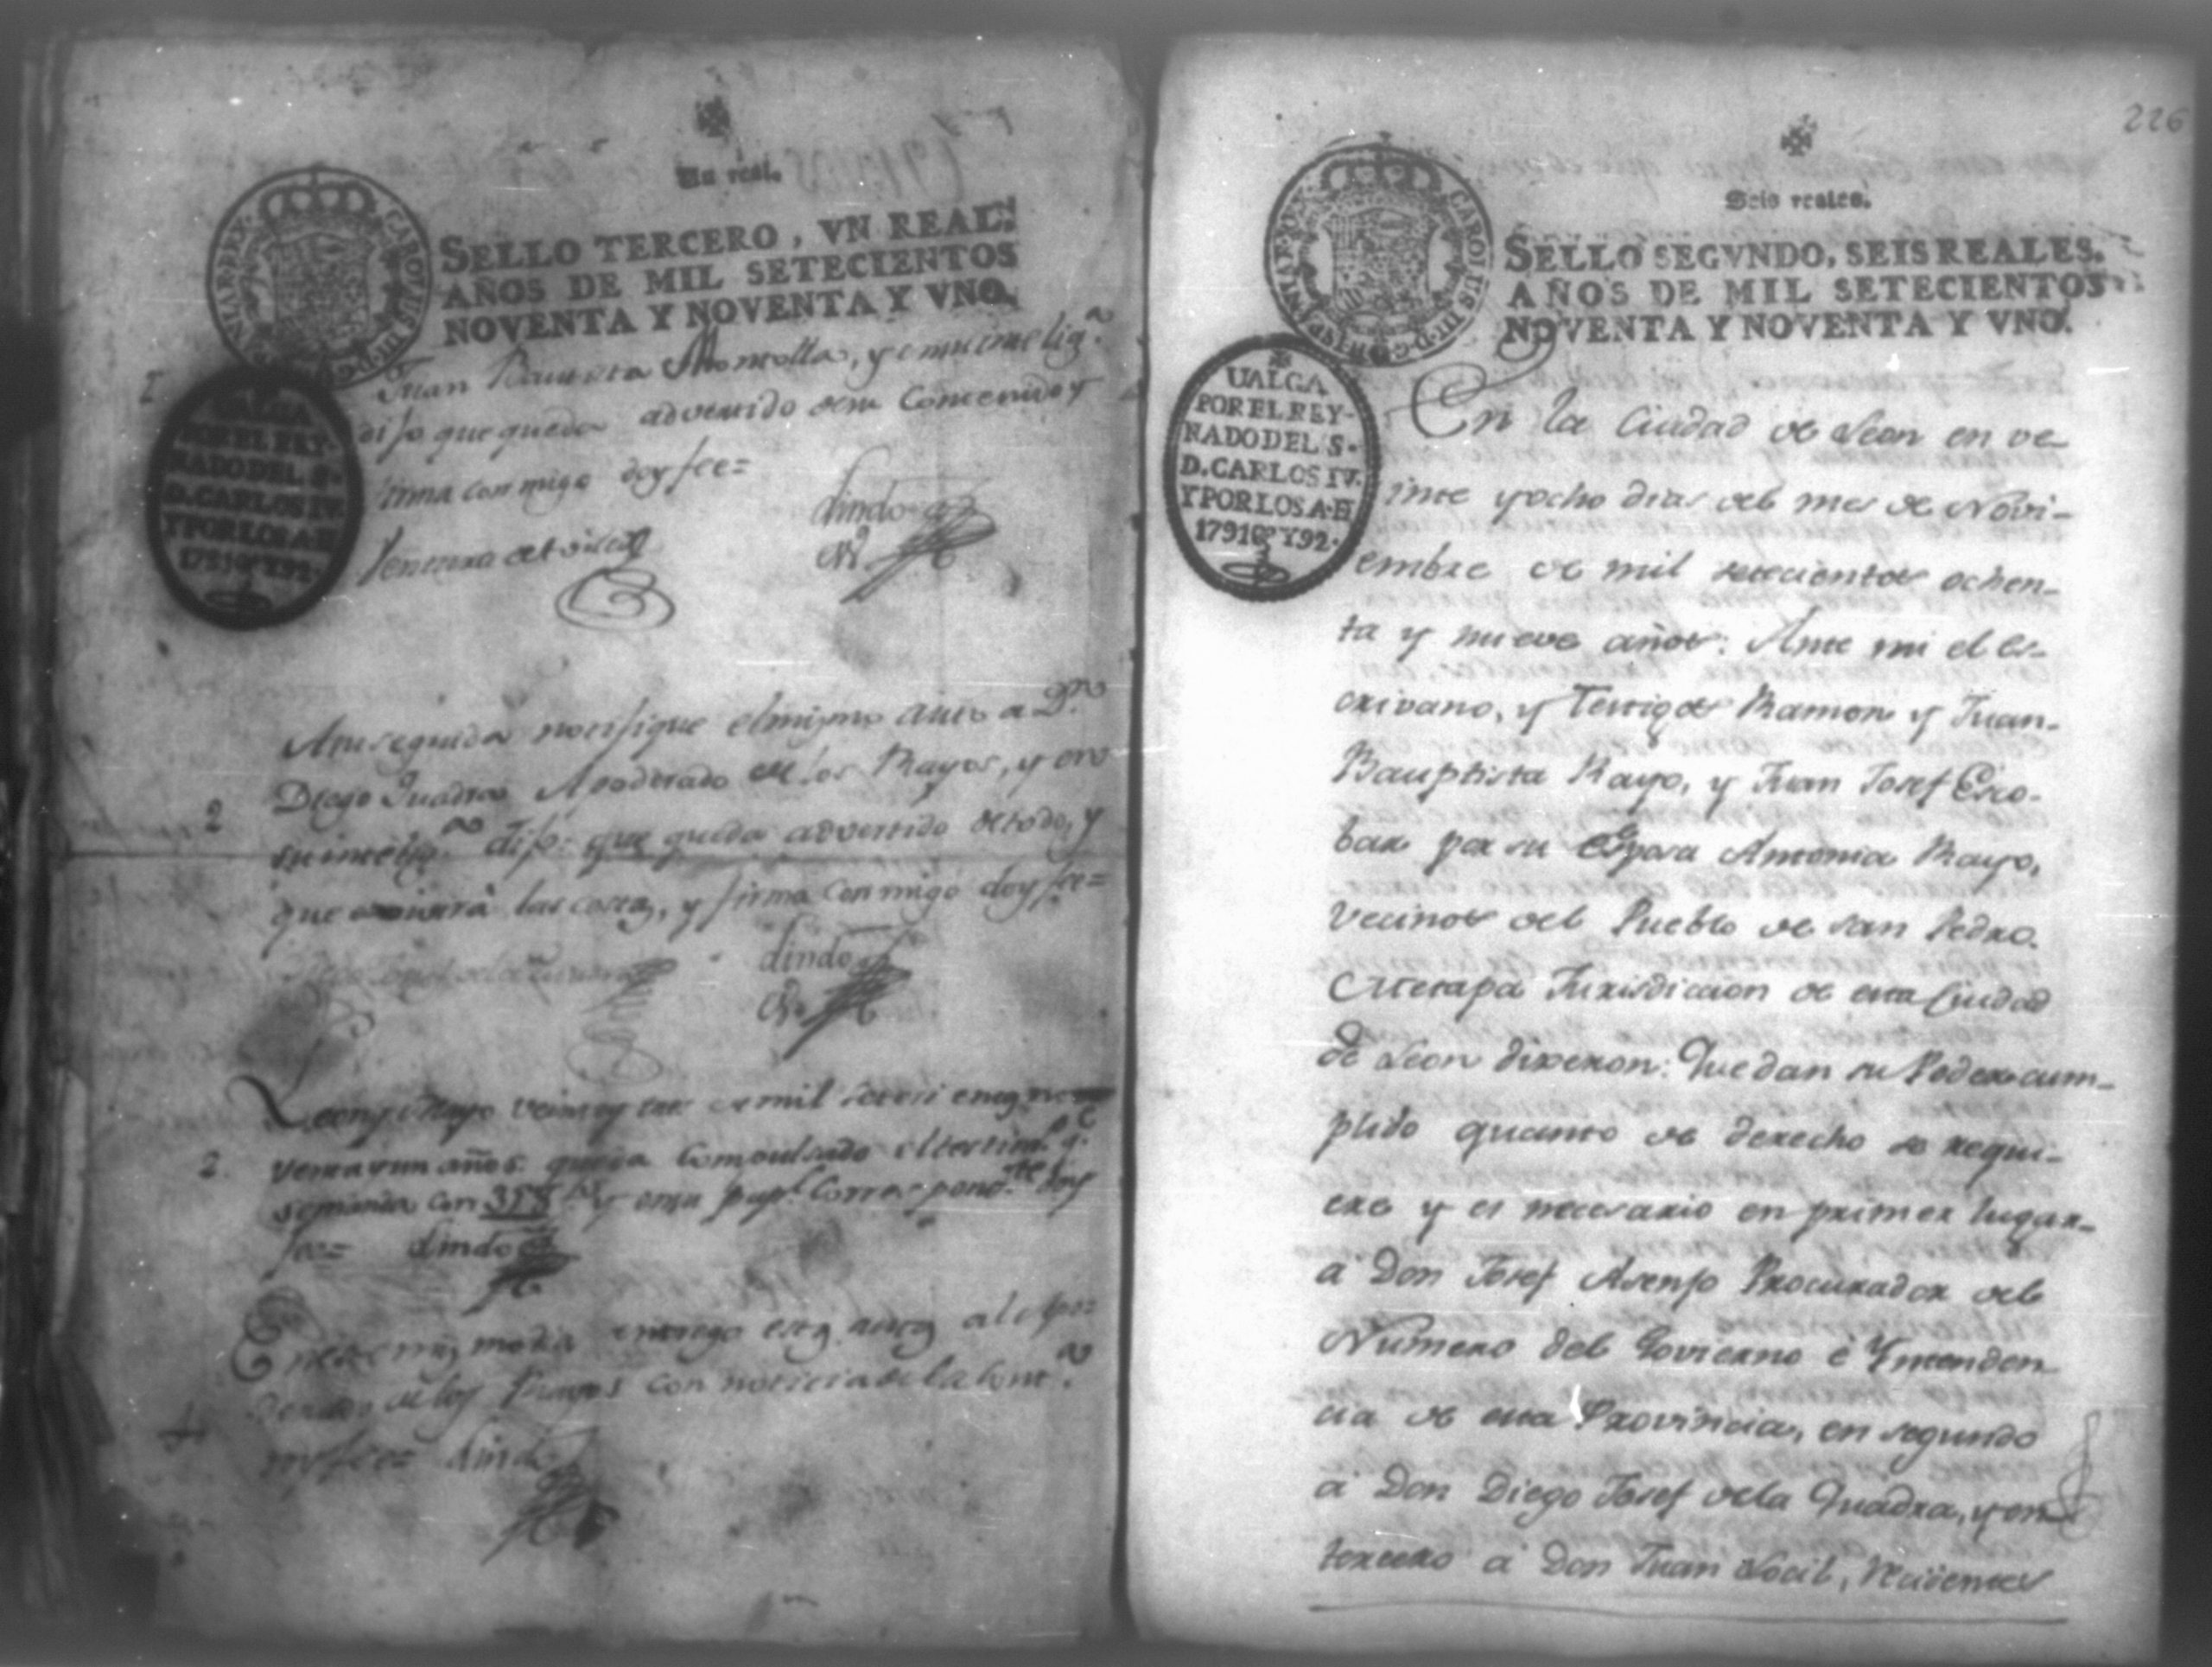 Un real.
SELLO TERCERO, VN REAL:
AÑOS DE MIL SETECIENTOS
NOVENTA Y NOVENTA Y VNO.
CAROLUS III D G
VALGA
POR EL REY-
NADO DEL S.
D. CARLOS IV.
Y POR LOS A. D
1791 Y 92.
Juan Bautista Montolla, y en su inteligª
dijo que queda advertido de su contenido y
firma conmigo doy fee=
Ventura
dindo
En seguida notifique el mismo auto a Dn
2 Diego Quadra Apoderado de los Mayos, y en
su inteligª dijo: que queda advertido de todo, y
que las costas, y firma conmigo doy fee=
dindo
Leon y Mayo veinte y tres de mil seteci entos no
2 venta y un años queda Compulsado el testimº q.e
con 375 y en su papl Correspondte doy
fee= dindo
En este mismo dia entrego estos autos al Apo=
derado de los Mayos con noticia de la
doy fee= dindo
226
Seis reales.
SELLO SEGVNDO, SEIS REALES.
AÑOS DE MIL SETECIENTOS
NOVENTA Y NOVENTA Y VNO.
CAROLUS III D G
UALGA
POR EL REY-
NADO DEL S.
D. CARLOS IV.
Y POR LOS A. D
1791 Y 92.
En la Ciudad de Leon en ve
inte y ocho dias del mes de Novi-
embre de mil setecientos ochen-
ta y nueve años: Ante mi el es-
crivano, y Testigos Ramon y Juan-
Bauptista Mayo, y Juan Josef Esco-
bar por su Esposa Antonia Mayo,
Vecinos del Pueblo de San Pedro
Metapa Jurisdiccion de esta Ciudad
de Leon dixeron: Que dan su Poder cum-
plido quanto de derecho se requi-
ere y es necesario en primer lugar-
á Don Josef Asenjo Procurador del
Numero del Govierno é Yntenden-
cia de esta Provincia, en segundo
á Don Diego Josef de la Quadra, y en
tercero á Don Juan Vecinos